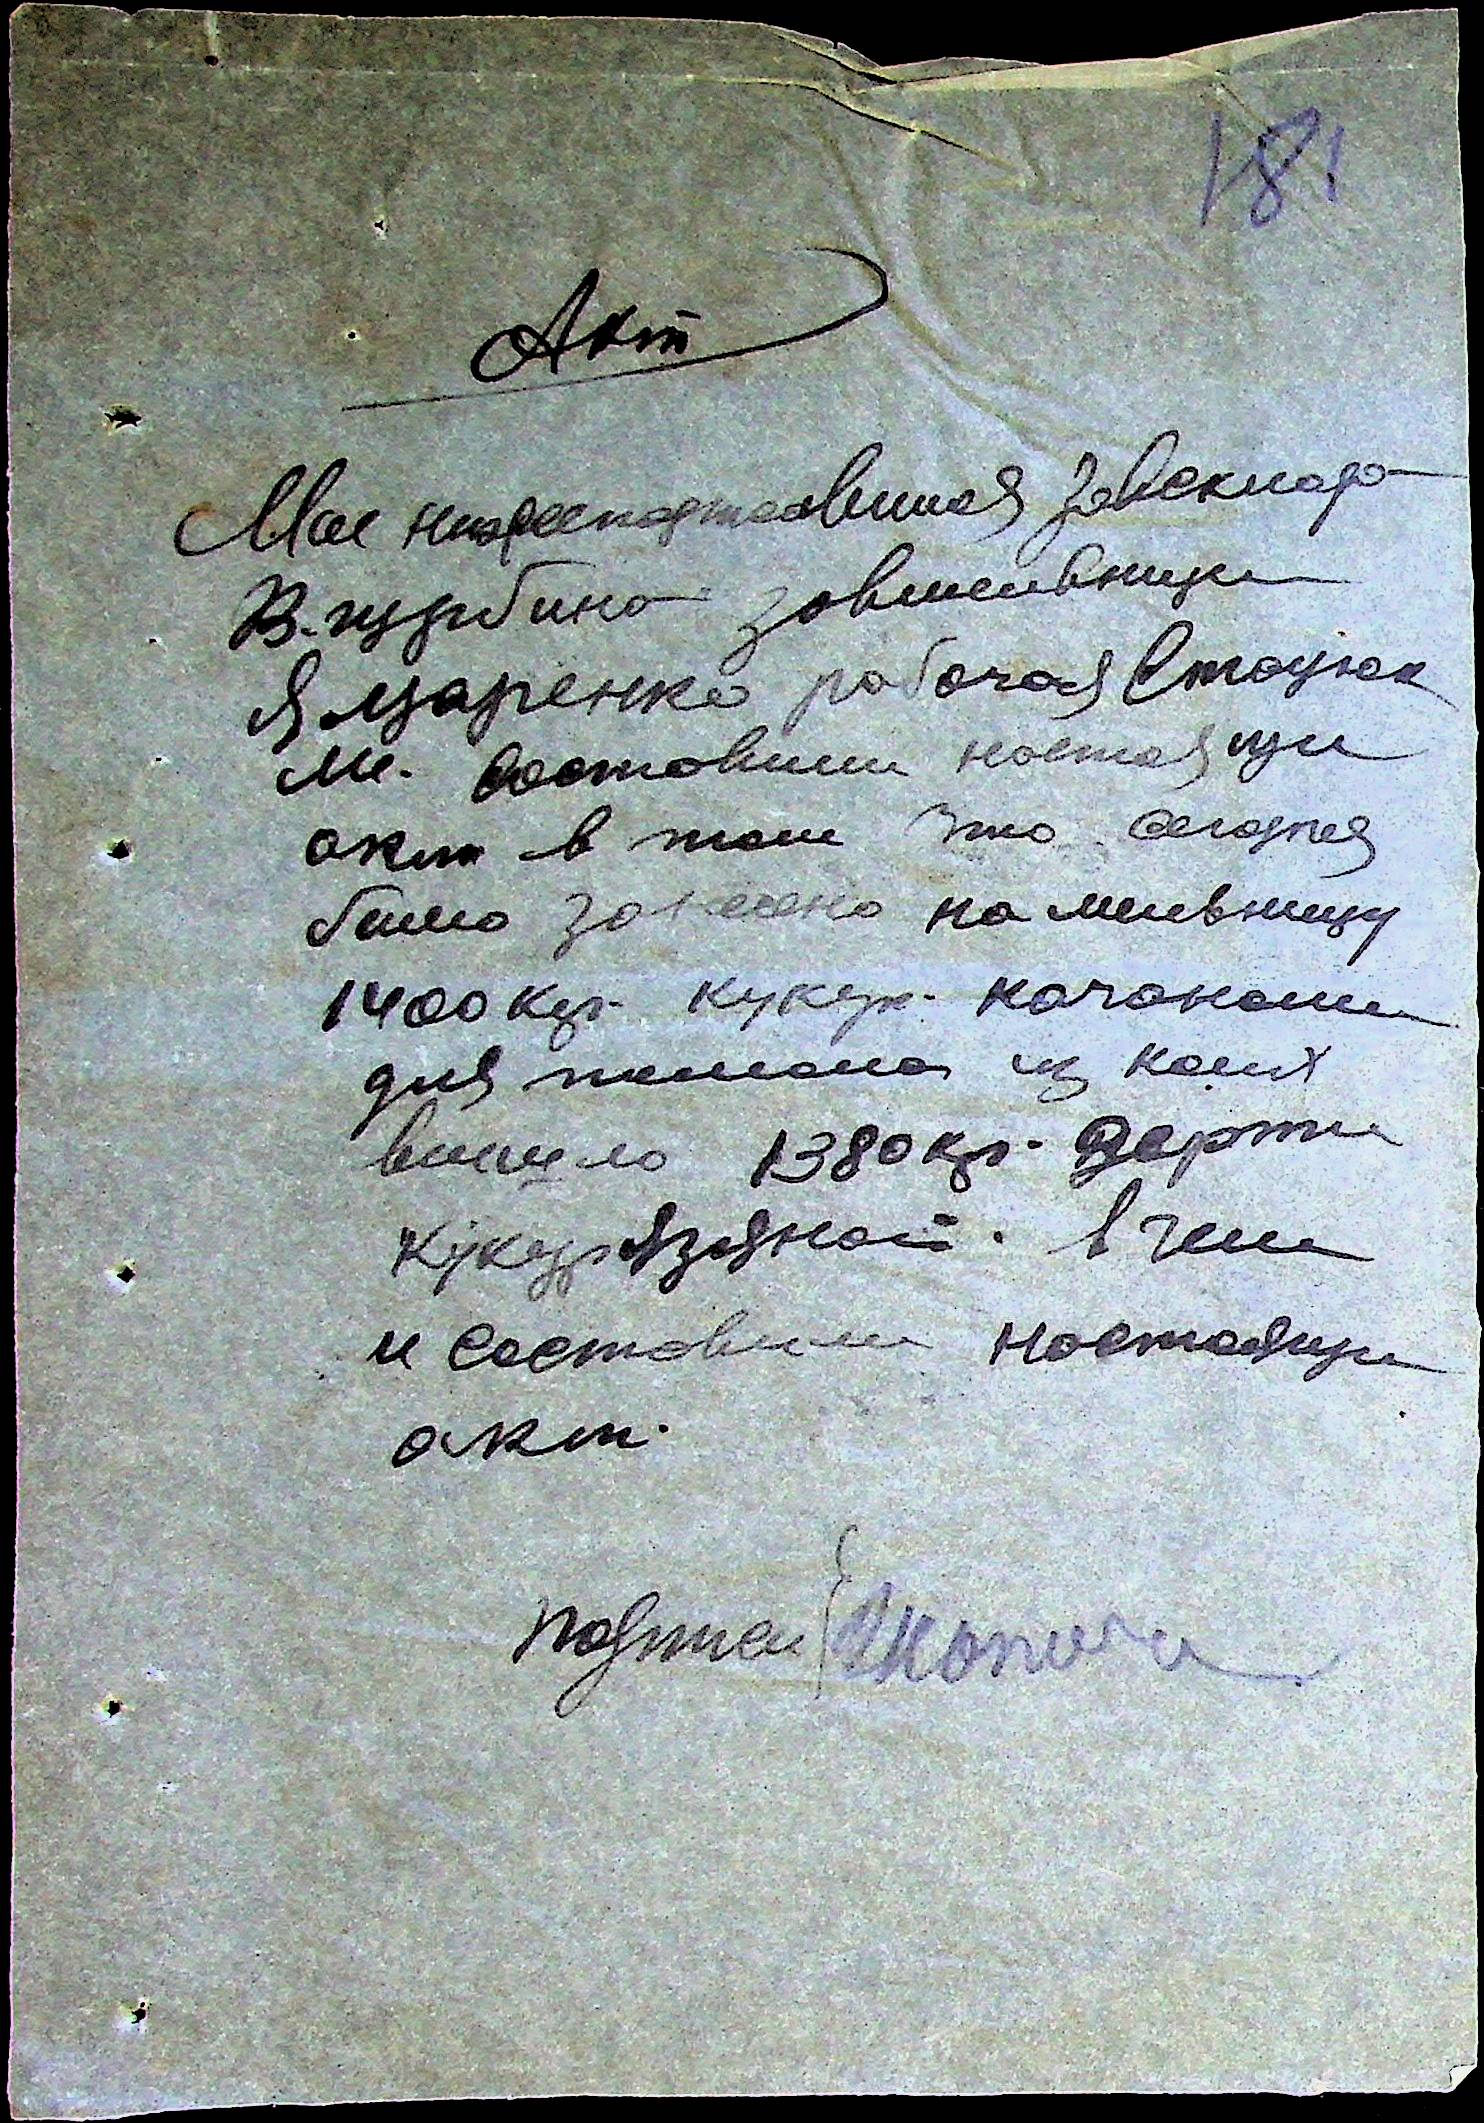 181
Акт
Мы завсклада
В. журбина завмельници
Ященко рабочая Стацюк
М. составили настоящи
акт в том что сегодня
било завезено на мельницу
1400 кгр. кукур. качанами
для помола из коих
вишло 1380 кгр. дерти
кукурузяной. в чем
и составили настоящи
акт.
подписи